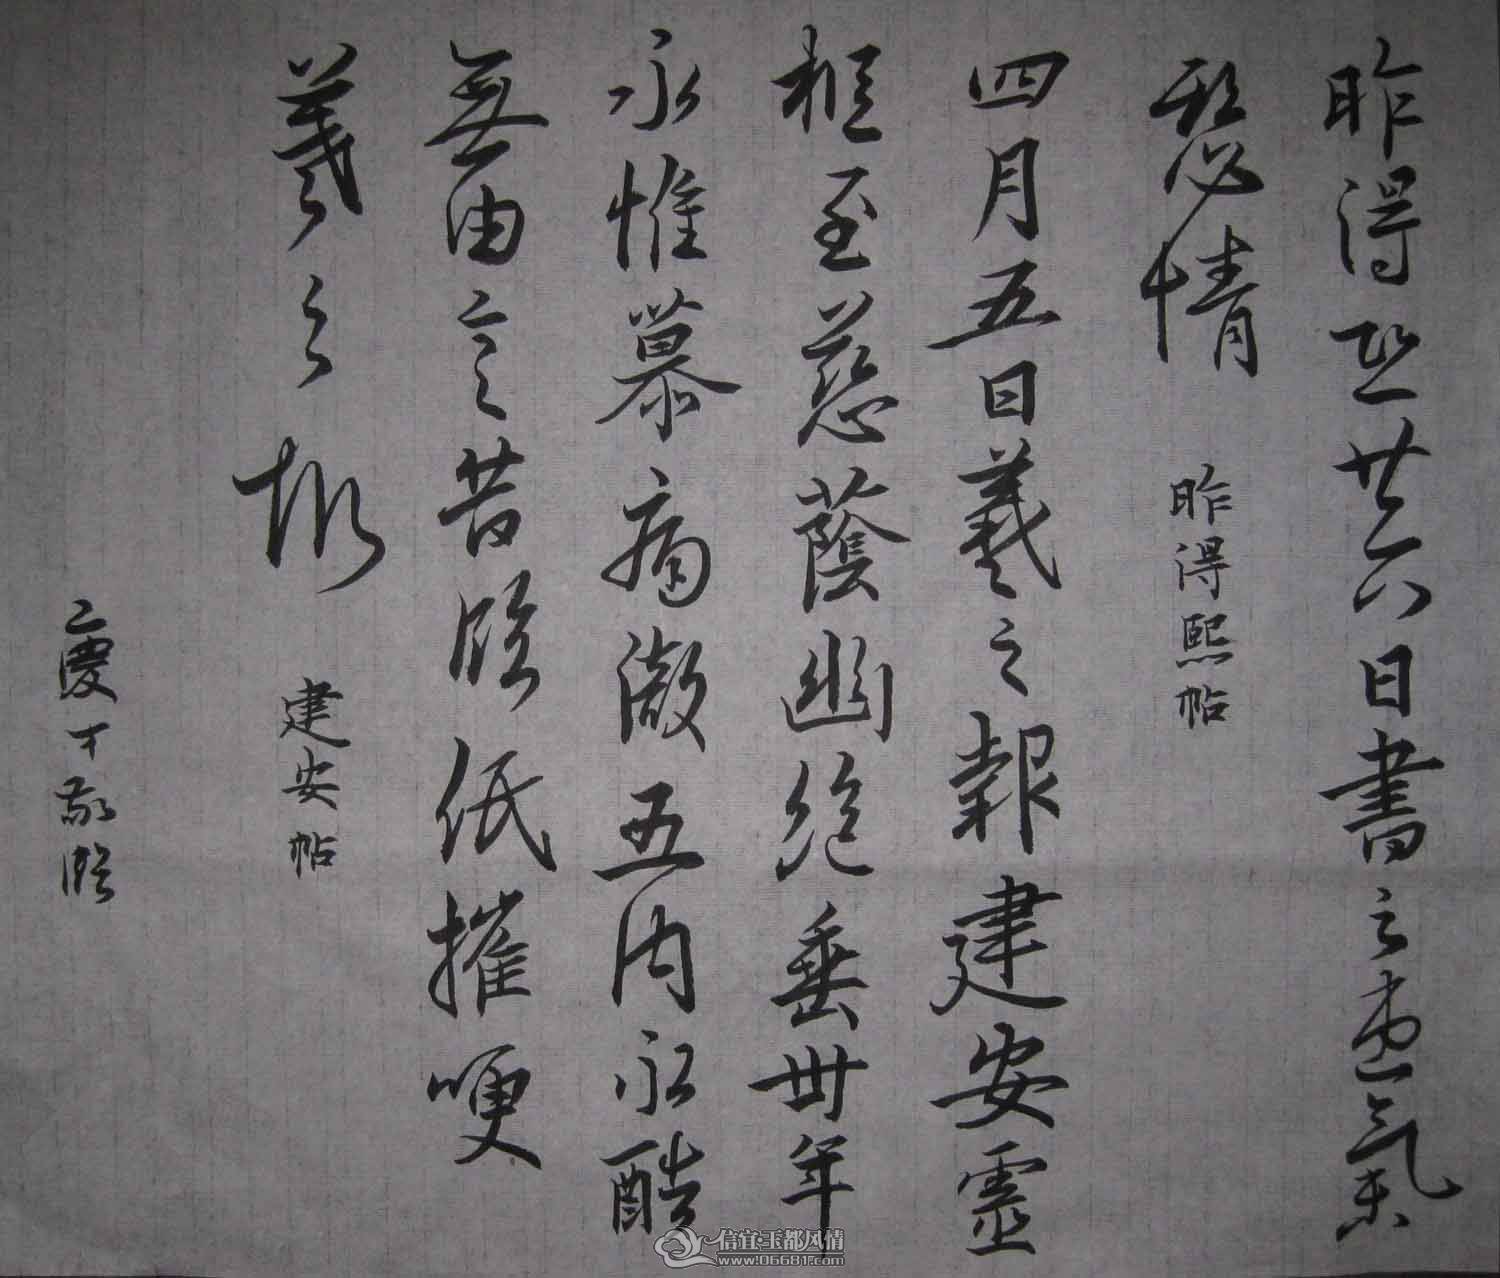 昨得熙廿六日書之書氣
愁情
昨得熙帖
四月五日羲之報建安靈
柩至慈蔭幽絕垂卅年
永惟慕痛徹五内永酷
無由言昔臨紙摧哽
羲之報
建安帖
慶才敬臨
信宜·玉都风情
www.06681.com